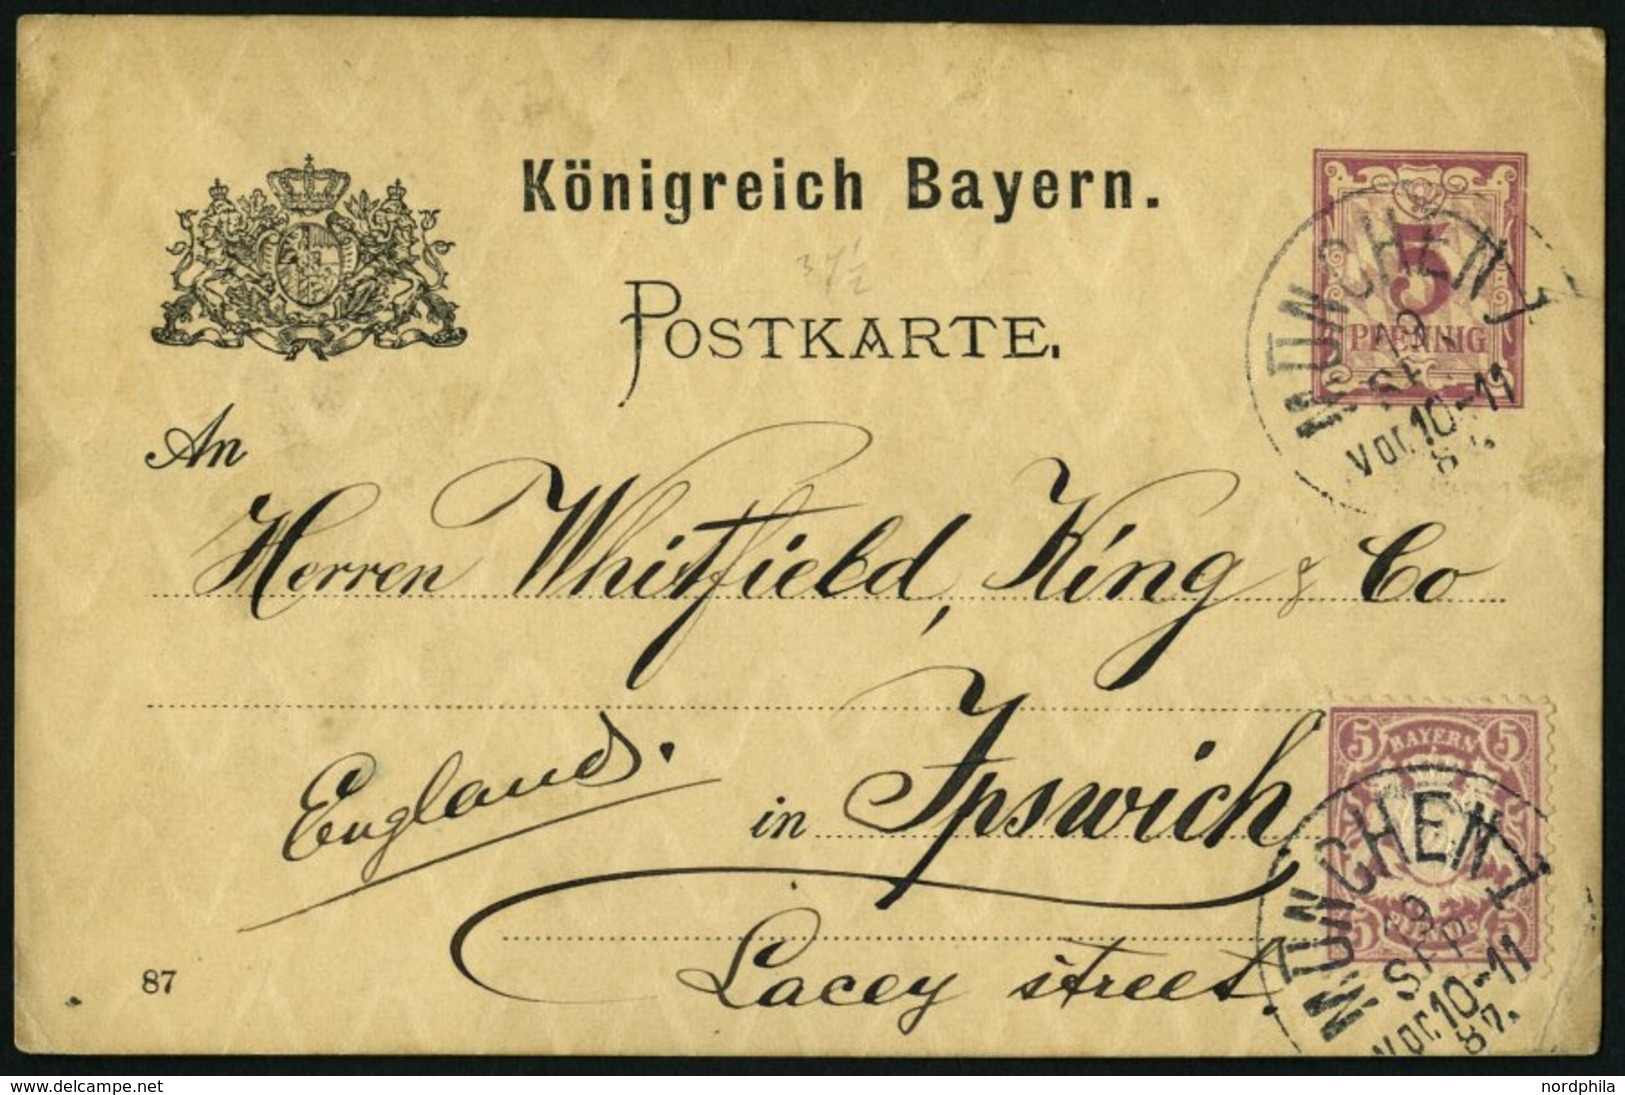 Königreich Bayern.
3 1/2
POSTKARTE.
5
PFENNIG
MÜNCHEN I
9
SEP
Vor. 10-11
87.
An
Herren Whitfield, King & Co
England.
in Ipswich,
Lacey street.
87
5 BAYERN 5
MÜNCHEN I
9
SEP
Vor. 10-11
87.
5 5
delcampe.net
nordphila